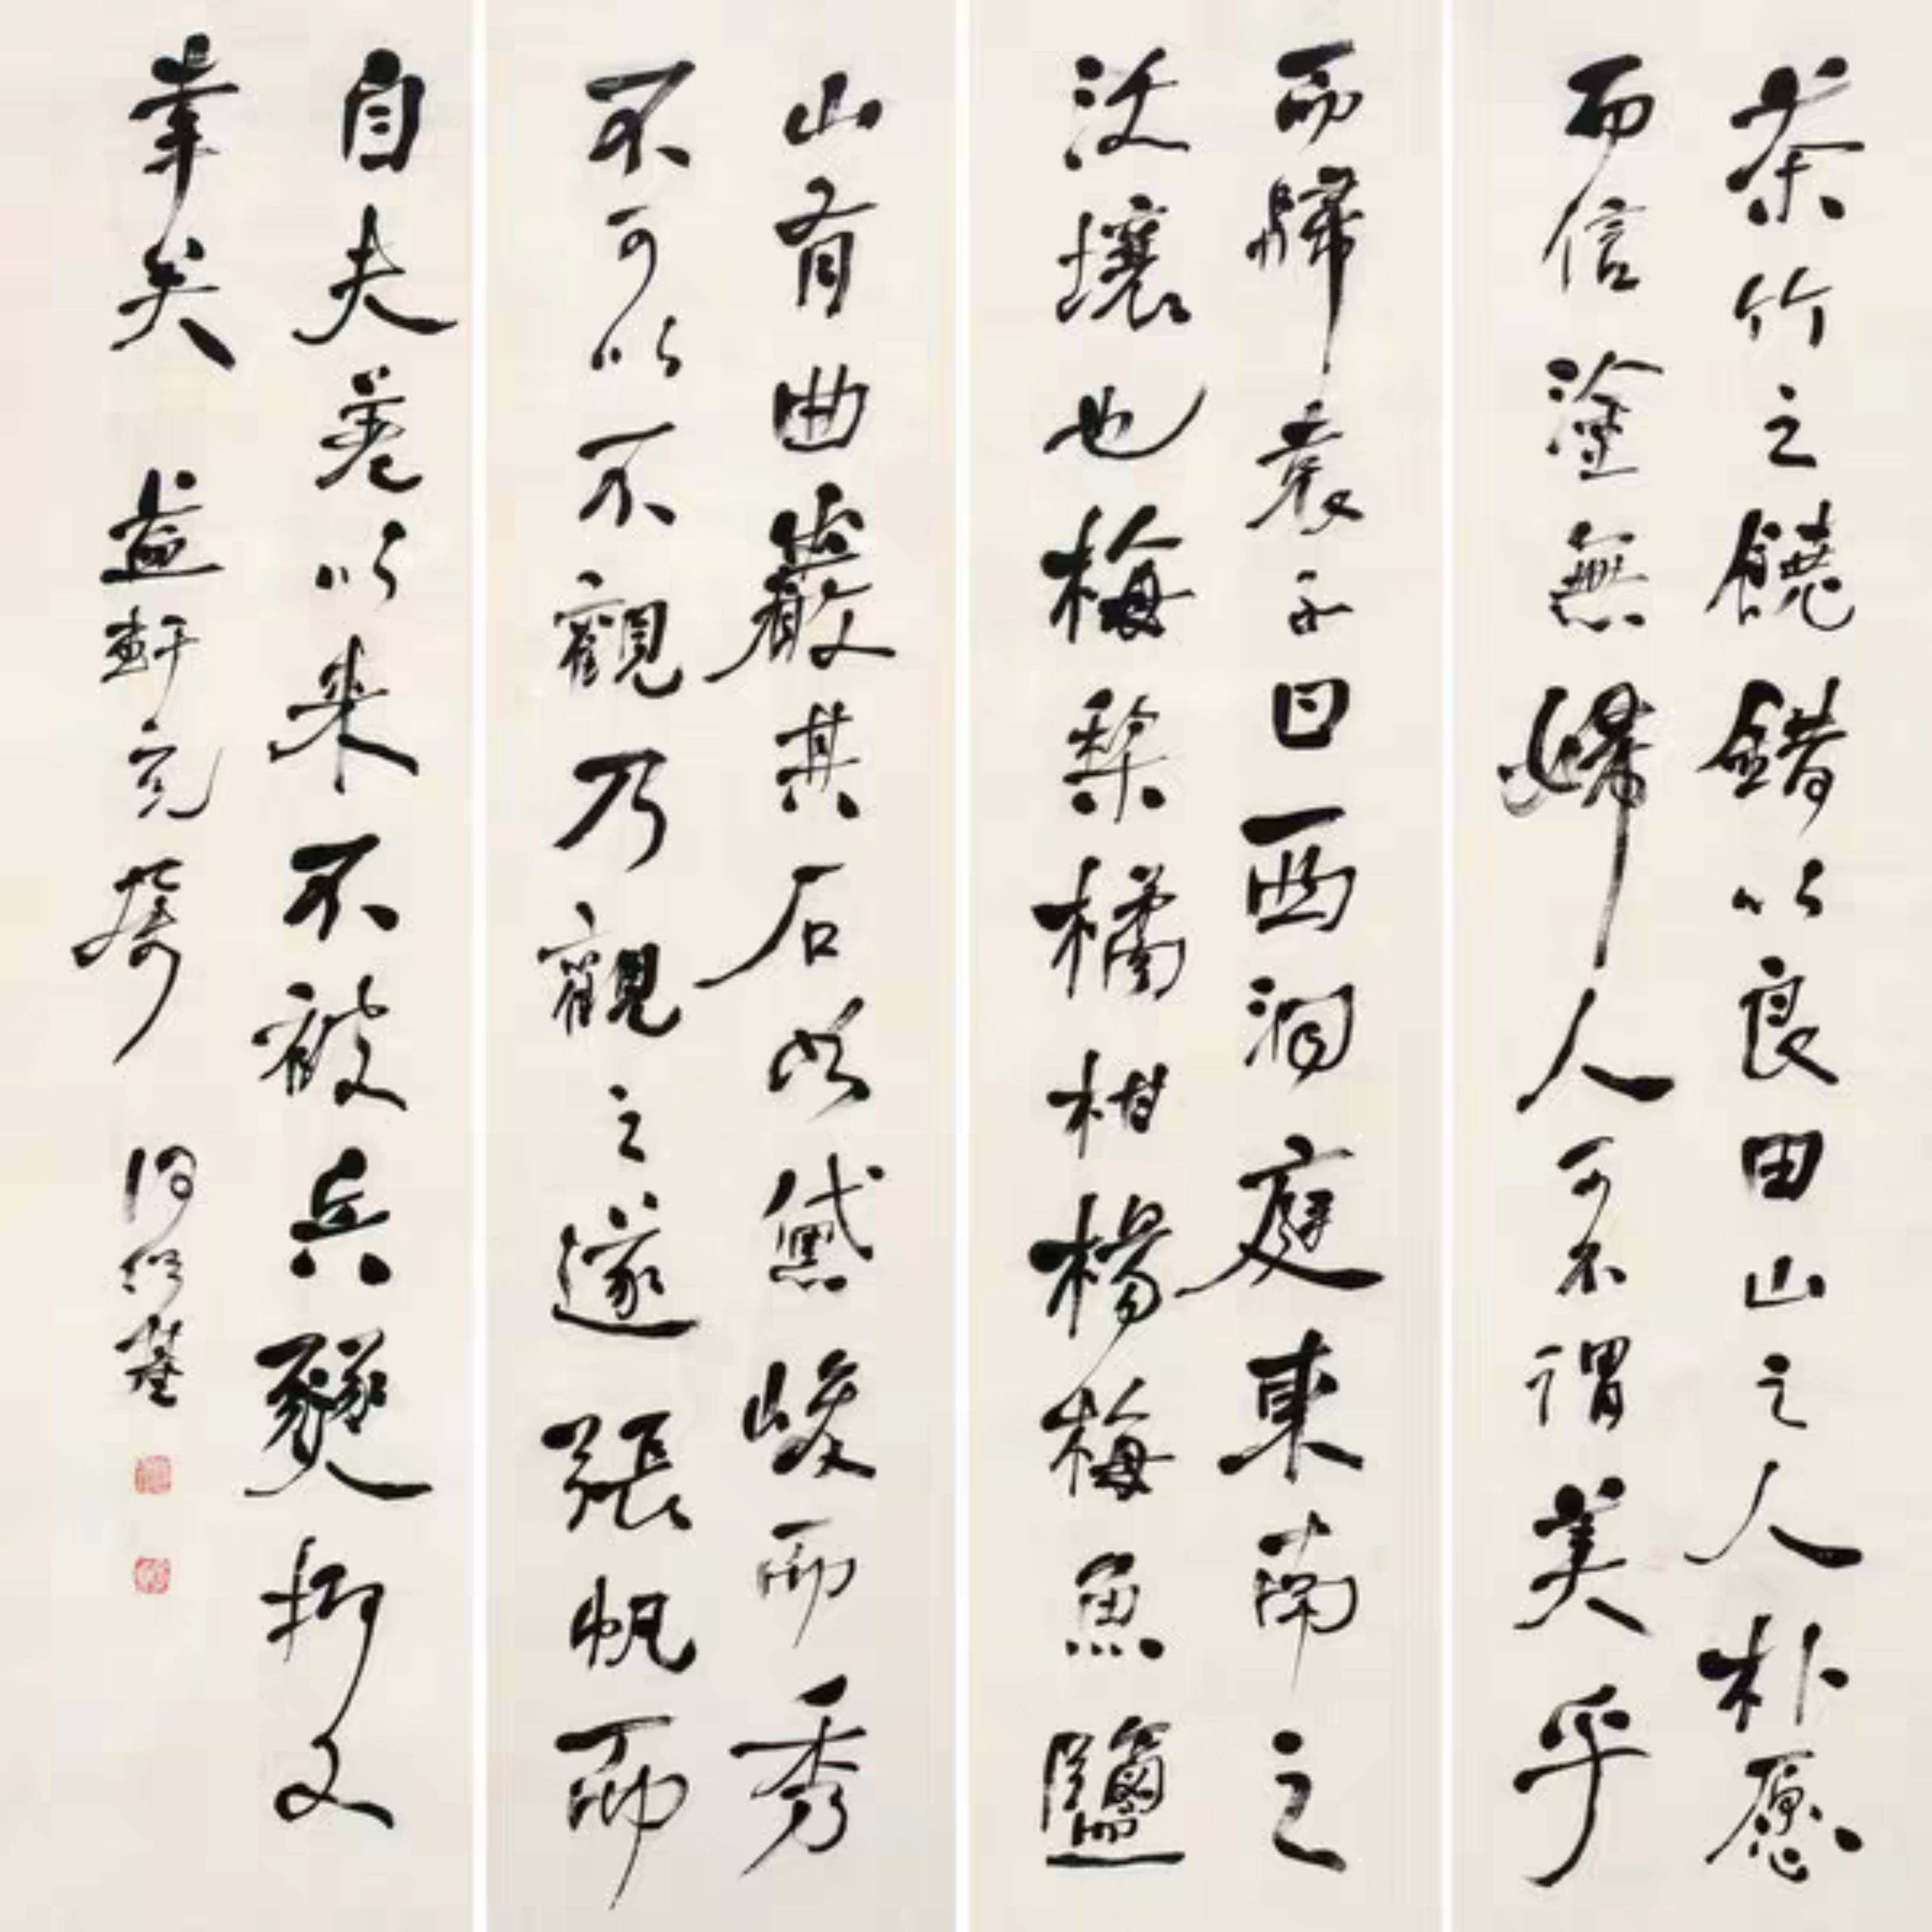 茶竹之饒錯以良田山之人朴愿
而信塗無婦人可不謂美乎
而歸袁子曰西洞庭東南之
沃壤也梅梨橘柑楊梅魚鹽
山有曲巖其石如黛峻而秀
不可以不觀乃觀之遂張帆而
自夫差以來不被兵燹抑又
幸矣 益軒兄 何紹基